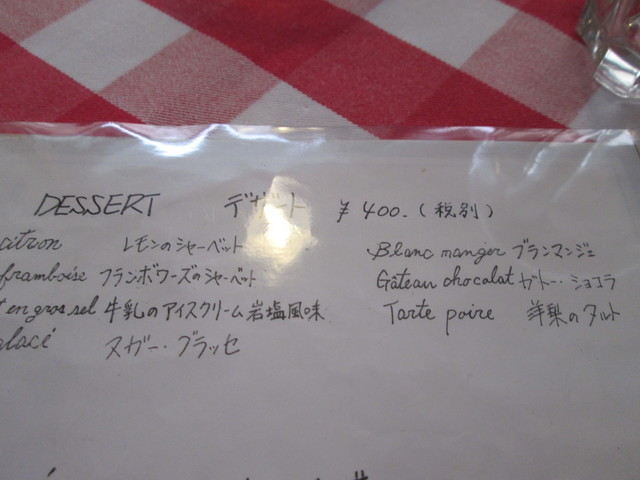 DESSERT デザート ¥400.(税別)
citron レモンのシャーベット
framboise フランボワーズのシャーベット
en gros sel 牛乳のアイスクリーム 岩塩風味
glacé スガー・ブラッセ
Blanc manger ブランマンジェ
Gâteau chocolat ガトー・ショコラ
Tarte poire 洋梨のタルト